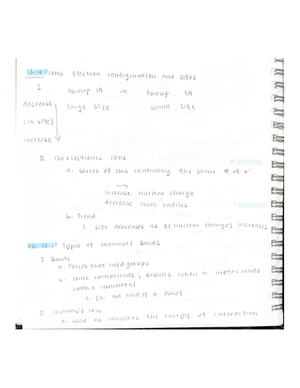 Ions Electron configuration and sizes
I. Group 1A → Group 7A
decrease large size small size
(in size)
increase
II. Isoelectronic Ions
A. Series of ions containing the same # of e⁻
→
increase nuclear charge
decrease ionic radius
b. Trend
1. size decreases as Z (nuclear charge) increases
Types of Chemical Bonds
I Bonds
A. Forces that hold groups
b. Ionic compounds; results when a metal reacts
with a nonmetal
1. EX: Na and Cl → NaCl
2 Coulomb's law
A. used to calculate the energy of interaction